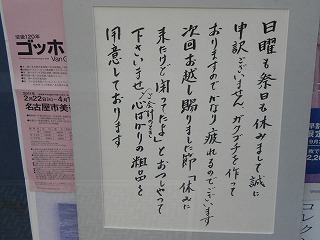 日曜も祭日も休みまして誠に
申訳ございません ガクブチを作って
おりますのでかなり疲れるのでございます
次回お越し賜りました節「休みに
来たけど閉ってたよ」とおっしゃって
下さいませ 心ばかりの粗品を
用意しております
没後120年
ゴッホ
Van G
2月22日(火)~4月
名古屋市美